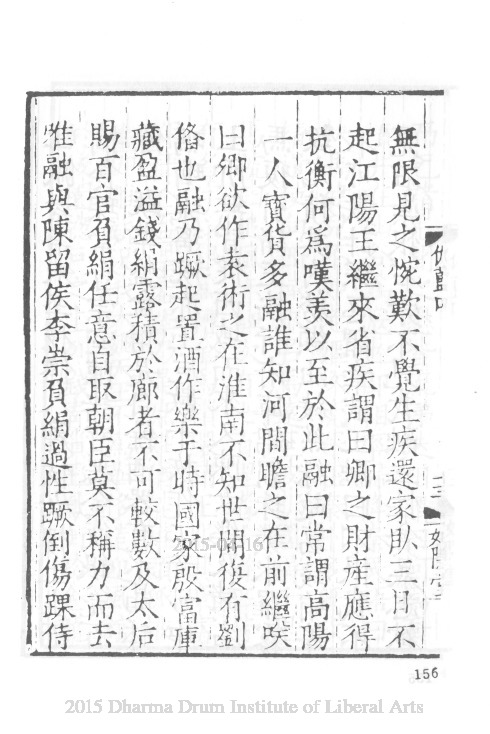 無限見之惋歎不覺生疾還家臥三日不
起江陽王繼來省疾謂曰卿之財産應得
抗衡何爲嘆羡以至於此融曰常謂高陽
一人寶貨多融誰知河間瞻之在前繼咲
曰卿欲作袁術之在淮南不知世間復有劉
俻也融乃蹶起置酒作樂于時國家殷富庫
藏盈溢錢絹露積於廊者不可較數及太后
賜百官負絹任意自取朝臣莫不稱力而去
惟融與陳留侯李崇負絹過性蹶倒傷踝侍
156
2015 Dharma Drum Institute of Liberal Arts